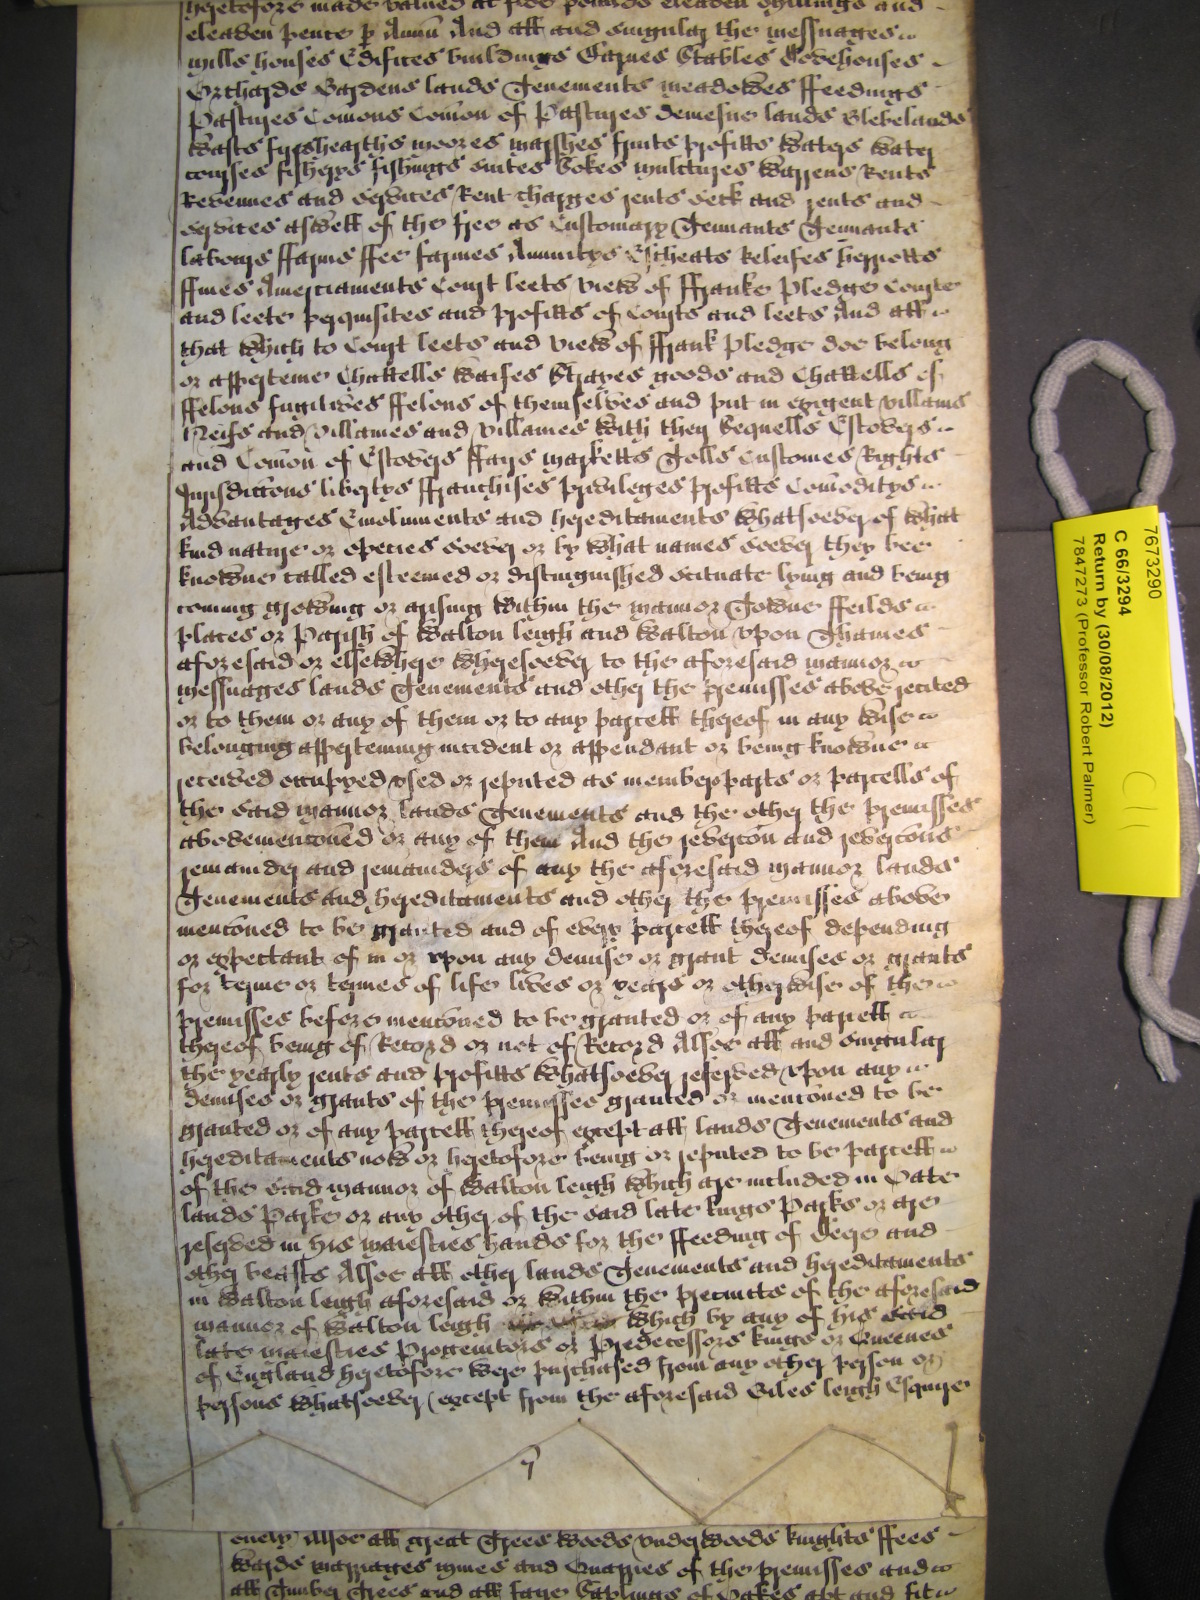 heretofore made valued at five pounds eleaven shillings and
eleaven pence p Annu And all and singuler the messuages
mills houses Edifices buildings Barnes Stables Dovehouses
Orchards Gardens lands Tenements meadowes ffeedings
Pastures Comons Comon of Pastures demesne lands Glebelands
Wasts furshearths moores marshes fruits profitts Waters Water
courses fisherys fishings suites Sokes mulctures Warrens Rents
Revenues and Services Rent charges rents seck and rents and
services aswell of the free as Customary Tennants Tennants
labours ffarms ffee farmes Annuitys Escheats Releifes herriotts
ffines Amerciaments Court leets view of ffranke Pledge Courte
and leete perquisites and profitts of Courts and leets And all
that which to Court leets and view of ffrank pledge doe belong
or apperteine Chattells Waifes Strayes goods and Chattells of
ffelons fugitives ffelons of themselves and put in exigent villains
Neifs and villaines and villaines with their Sequells Estovers
and Comon of Estovers ffairs marketts Tolls Customes Rights
Jurisdiccons libertys ffranchises priviledges profitts Comoditys
Advantages Emoluments and hereditaments whatsoever of what
kind nature or species soever or by what names soever they bee
knowne called esteemed or distinguished scituate lying and being
coming growing or arising within the mannor Towne ffeilds
places or Parish of Walton leigh and Walton upon Thames
aforesaid or elsewhere wheresoever to the aforesaid mannor
messuages lands Tenements and other the premisses above recited
or to them or any of them or to any parcell thereof in any wise
belonging apperteining incident or appendant or being knowne
received occupyed used or reputed as members parts or parcells of
the said mannor lands Tenements and the other the premisses
abovemenconed or any of them And the revercon and revercons
remainder and remainders of any the aforesaid mannor lands
Tenements and hereditaments and other the premisses above
menconed to be granted and of every parcell thereof depending
or expectant of in or upon any demise or grant demises or grants
for terme or termes of life lives or years or otherwise of the
premisses before menconed to be granted or of any parcell
thereof being of Record or not of Record Alsoe all and singuler
the yearly rents and profitts whatsoever reserved upon any
demises or grants of the premisses granted or menconed to be
granted or of any parcell thereof except all lands Tenements and
hereditaments now or heretofore being or reputed to be parcell
of the said mannor of Walton leigh which are included in Oate
lands Parke or any other of the said late kings Parks or are
reserved in his maiesties hands for the ffeeding of deere and
other beasts Alsoe all other lands Tenements and hereditaments
in Walton leigh aforesaid or within the precincts of the aforesaid
mannor of Walton leigh which by any of his said
late maiesties Progenitors or Predecessors kings or Queenes
of England heretofore were purchased from any other person or
persons whatsoever (except from the aforesaid Giles leigh Esquire
onely Alsoe all great Trees woods underwoods knights ffees
wards marriages mynes and Quarries of the premisses and
all Timber Trees and all faire Saplings of Oakes apt and fit
7673290
C 66/3294
Return by (30/08/2012)
7847273 (Professor Robert Palmer)
C11